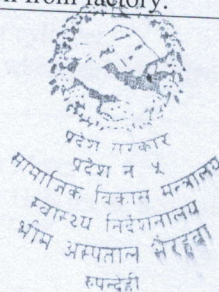 from factory.
प्रदेश सरकार
प्रदेश नं ५
सामाजिक विकास मन्त्रालय
स्वास्थ्य निर्देशनालय
भीम अस्पताल भैरहवा
रुपन्देही